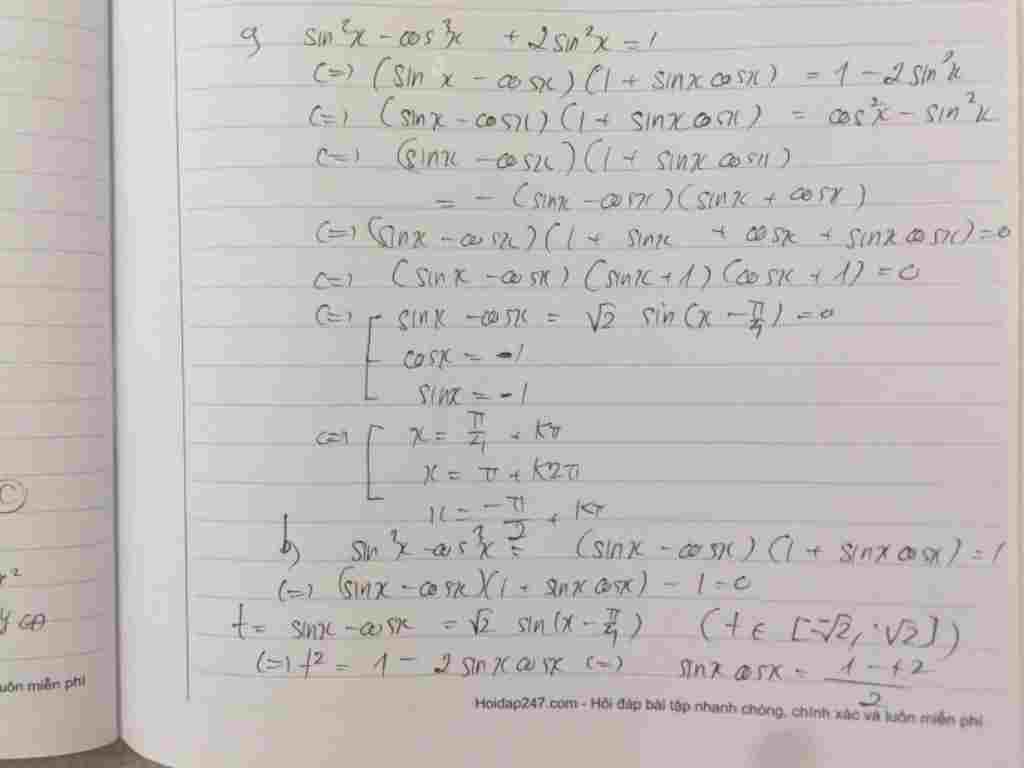 a) sin³x - cos³x + 2sin²x = 1
(=) (sin x - cosx) (1 + sinx cosx) = 1 - 2sin²x
(=) (sinx - cosx) (1 + sinx cosx) = cos²x - sin²x
(=) (sinx - cosx) (1 + sinx cosx)
= - (sinx - cosx) (sinx + cosx)
(=) (sinx - cosx) (1 + sinx + cosx + sinx cosx) = 0
(=) (sinx - cosx) (sinx + 1) (cosx + 1) = 0
(=) [ sinx - cosx = √2 sin(x - π/4) = 0
cosx = -1
sinx = -1
(=) [ x = π/4 + kπ
x = π + k2π
x = -π/2 + kπ
b) sin³x - cos³x = (sinx - cosx) (1 + sinx cosx) = 1
(=) (sinx - cosx)(1 + sinx cosx) - 1 = 0
t = sinx - cosx = √2 sin(x - π/4) (t ∈ [-√2, √2])
(=) t² = 1 - 2 sinx cosx (=) sinx cosx = (1 - t²)/2
C
x²
uôn miễn phí
Hoidap247.com - Hỏi đáp bài tập nhanh chóng, chính xác và luôn miễn phí